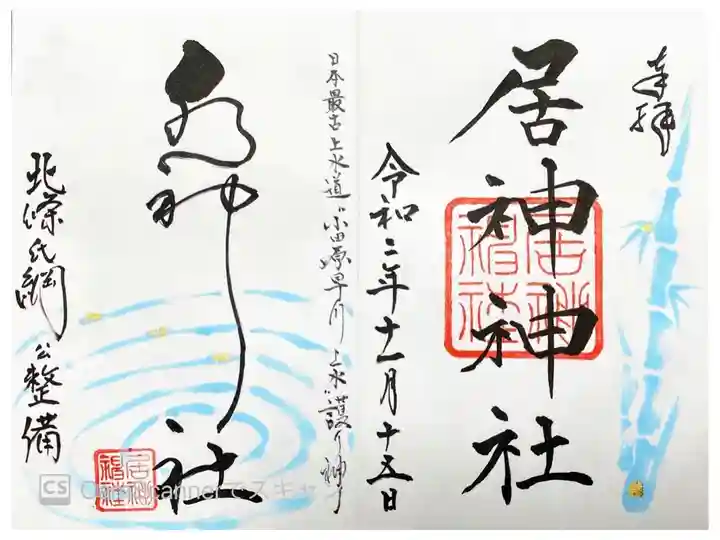 奉拝
居神神社
令和二年十一月十五日
日本最古上水道"小田原早川上水"護り神
水神社
北條氏綱公整備
CS CamScannerでスキャ